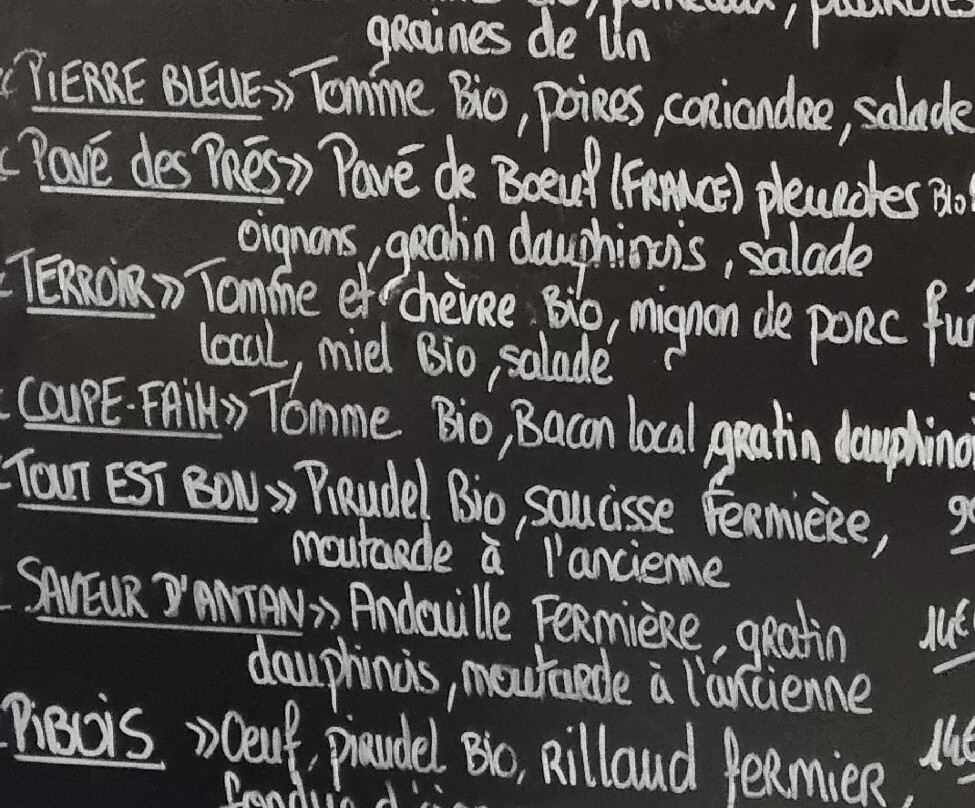 graines de lin
« PIERRE BLEUE » Tomme Bio, poires, coriandre, salade
« Pavé des Prés » Pavé de Boeuf (FRANCE) pleurotes Bio
oignons, gratin dauphinois, salade
TERROIR » Tomme et chèvre Bio, mignon de porc fu
local, miel Bio, salade
COUPE-FAIM » Tomme Bio, Bacon local gratin dauphino
TOUT EST BON » Pirudel Bio, saucisse Fermière,
moutarde à l'ancienne
SAVEUR D'ANTAN » Andouille Fermière, gratin 14€
dauphinois, moutarde à l'ancienne
PiBOIS » Oeuf, pirudel Bio, Rillaud fermier, 14€